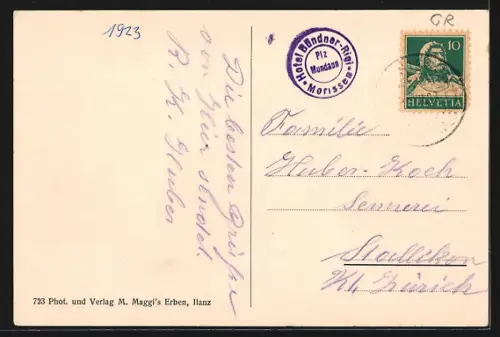 1923
GR
Hotel Bündner-Rigi
Piz
Mundaun
Morissen
10
HELVETIA
Die besten Grüße
von Hier sendet
K. Huber
Familie
Huber-Koch
Sennerei
Stallikon
Kt. Zürich
723 Phot. und Verlag M. Maggi's Erben, Ilanz